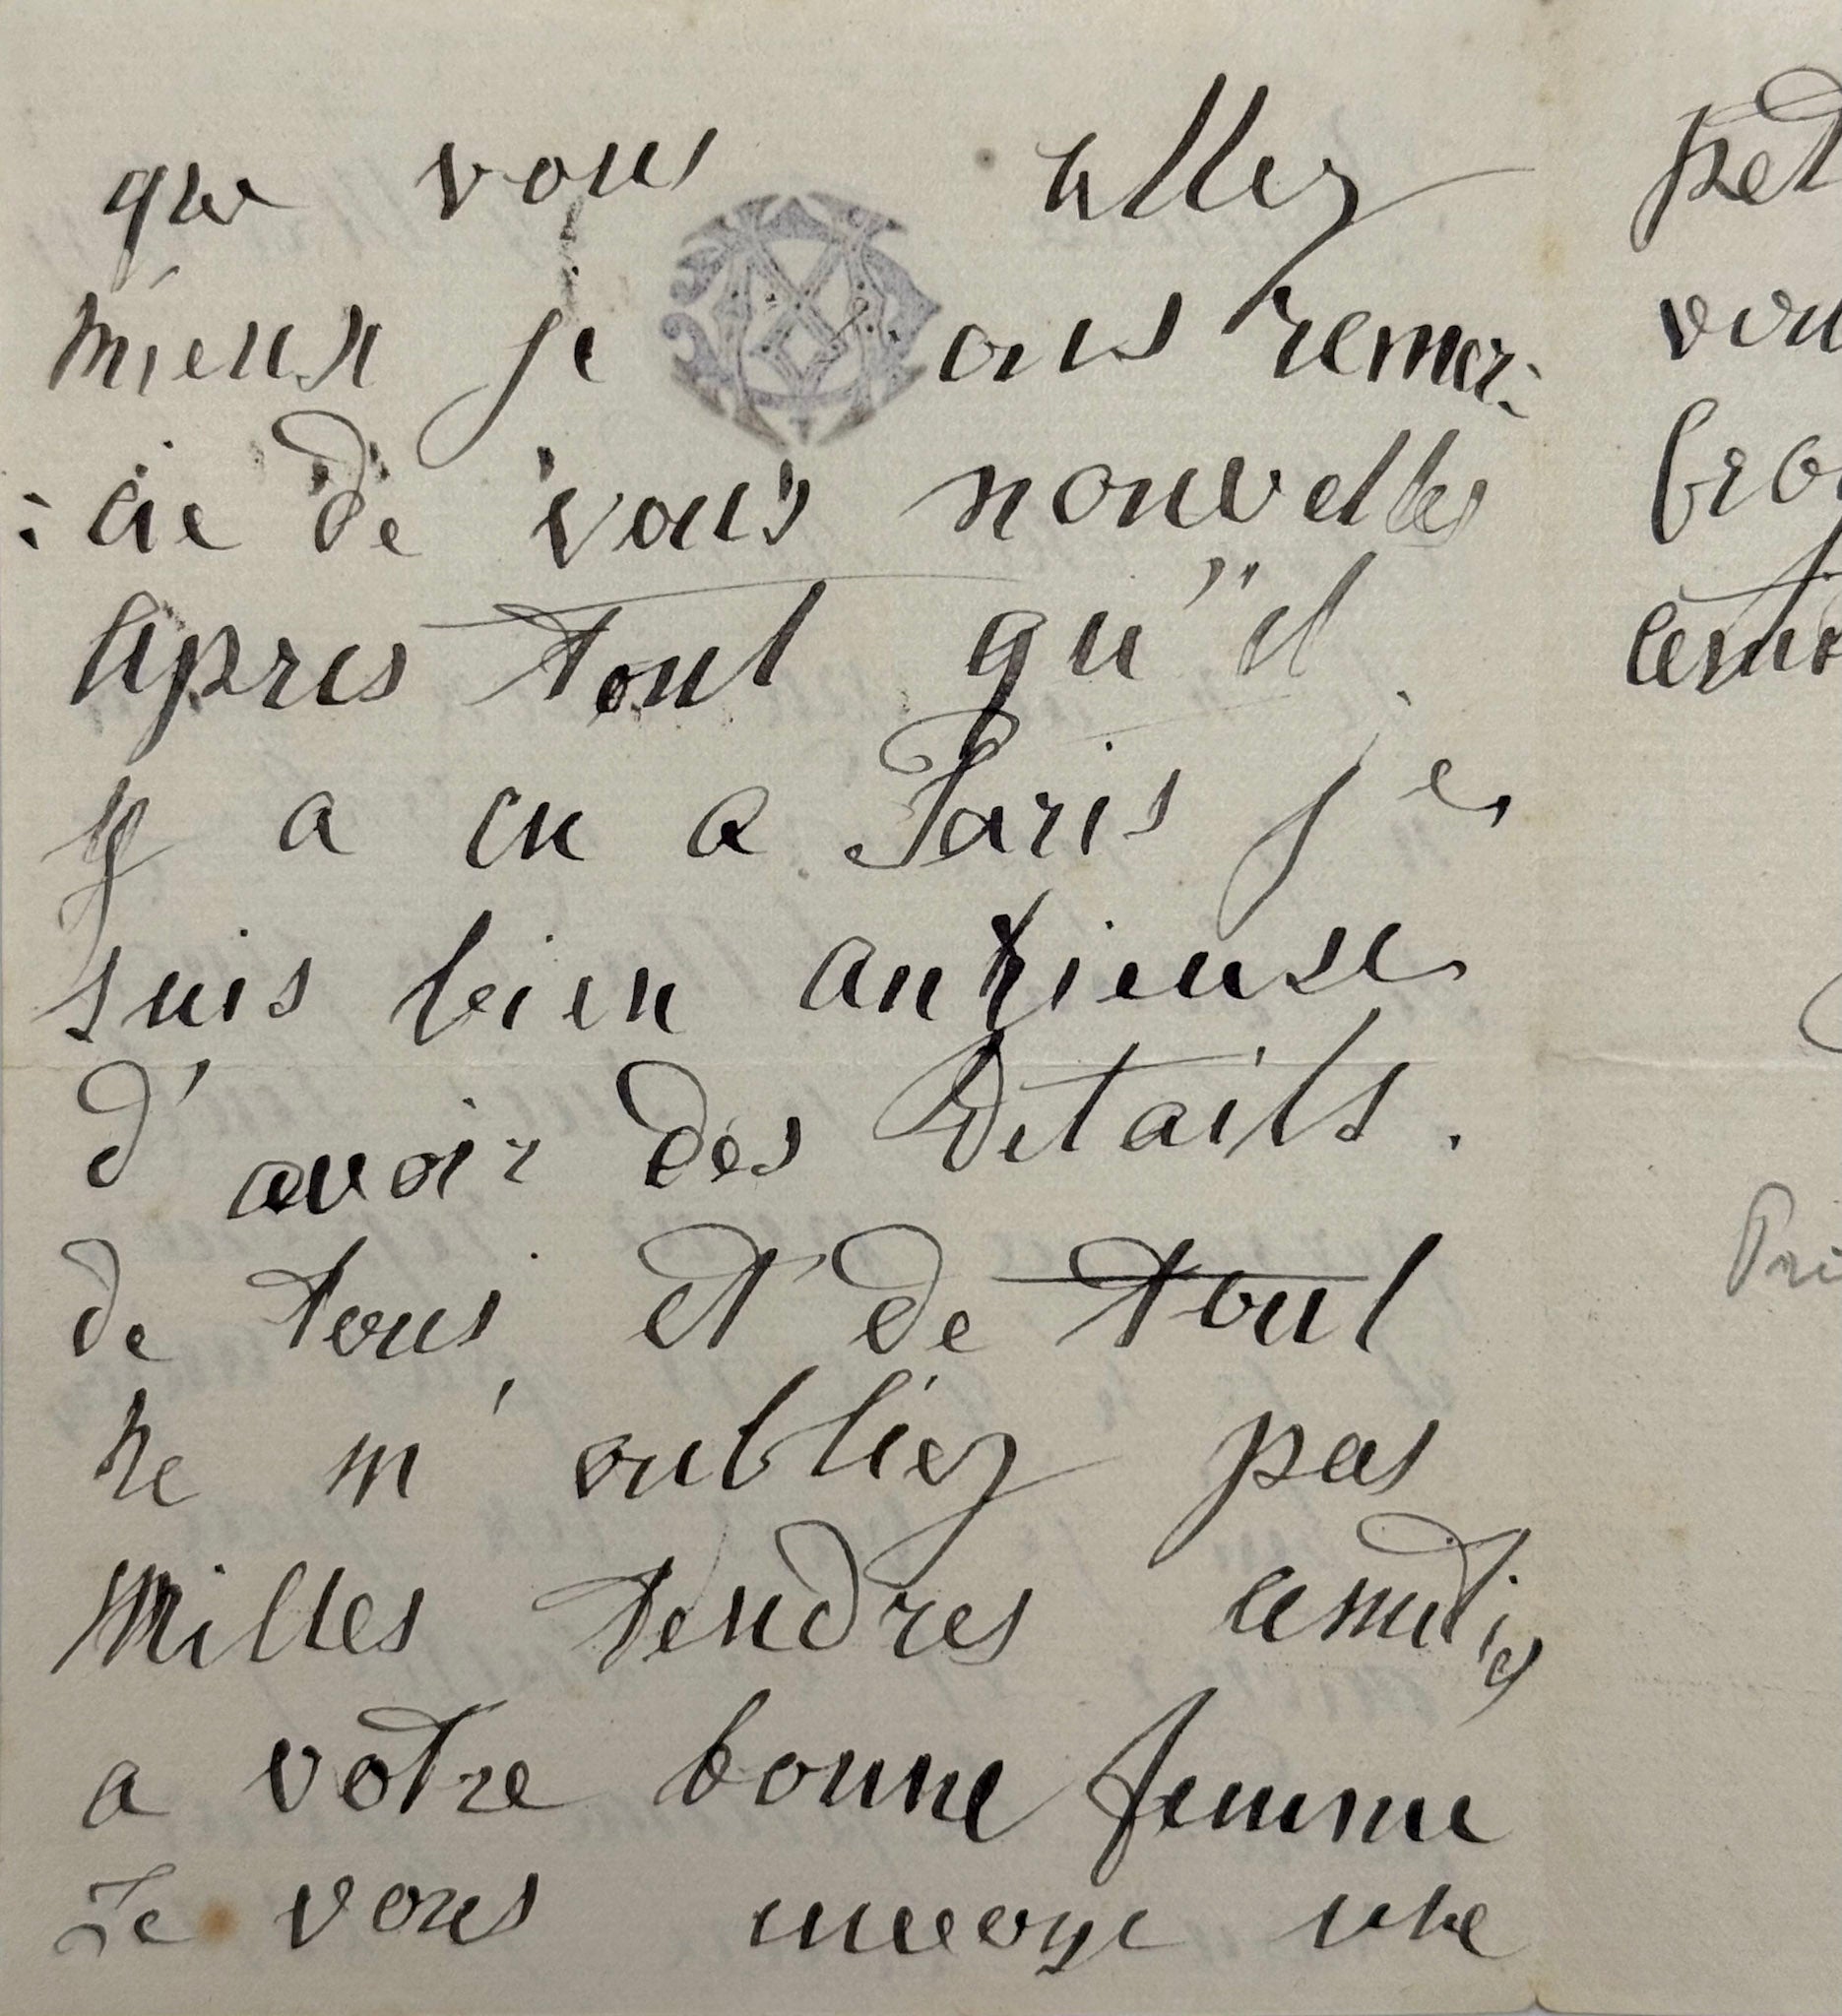 que vous allez
mieux je vous remer:
:cie de vous nouvelles
apres tout qu'il
y a eu a Paris je
suis bien anxieuse
d'avoir des Details.
de tous et de tout
ne m'oubliez pas
Milles tendres amities
a votre bonne femme
Je vous envoye une
pet
vou
bro